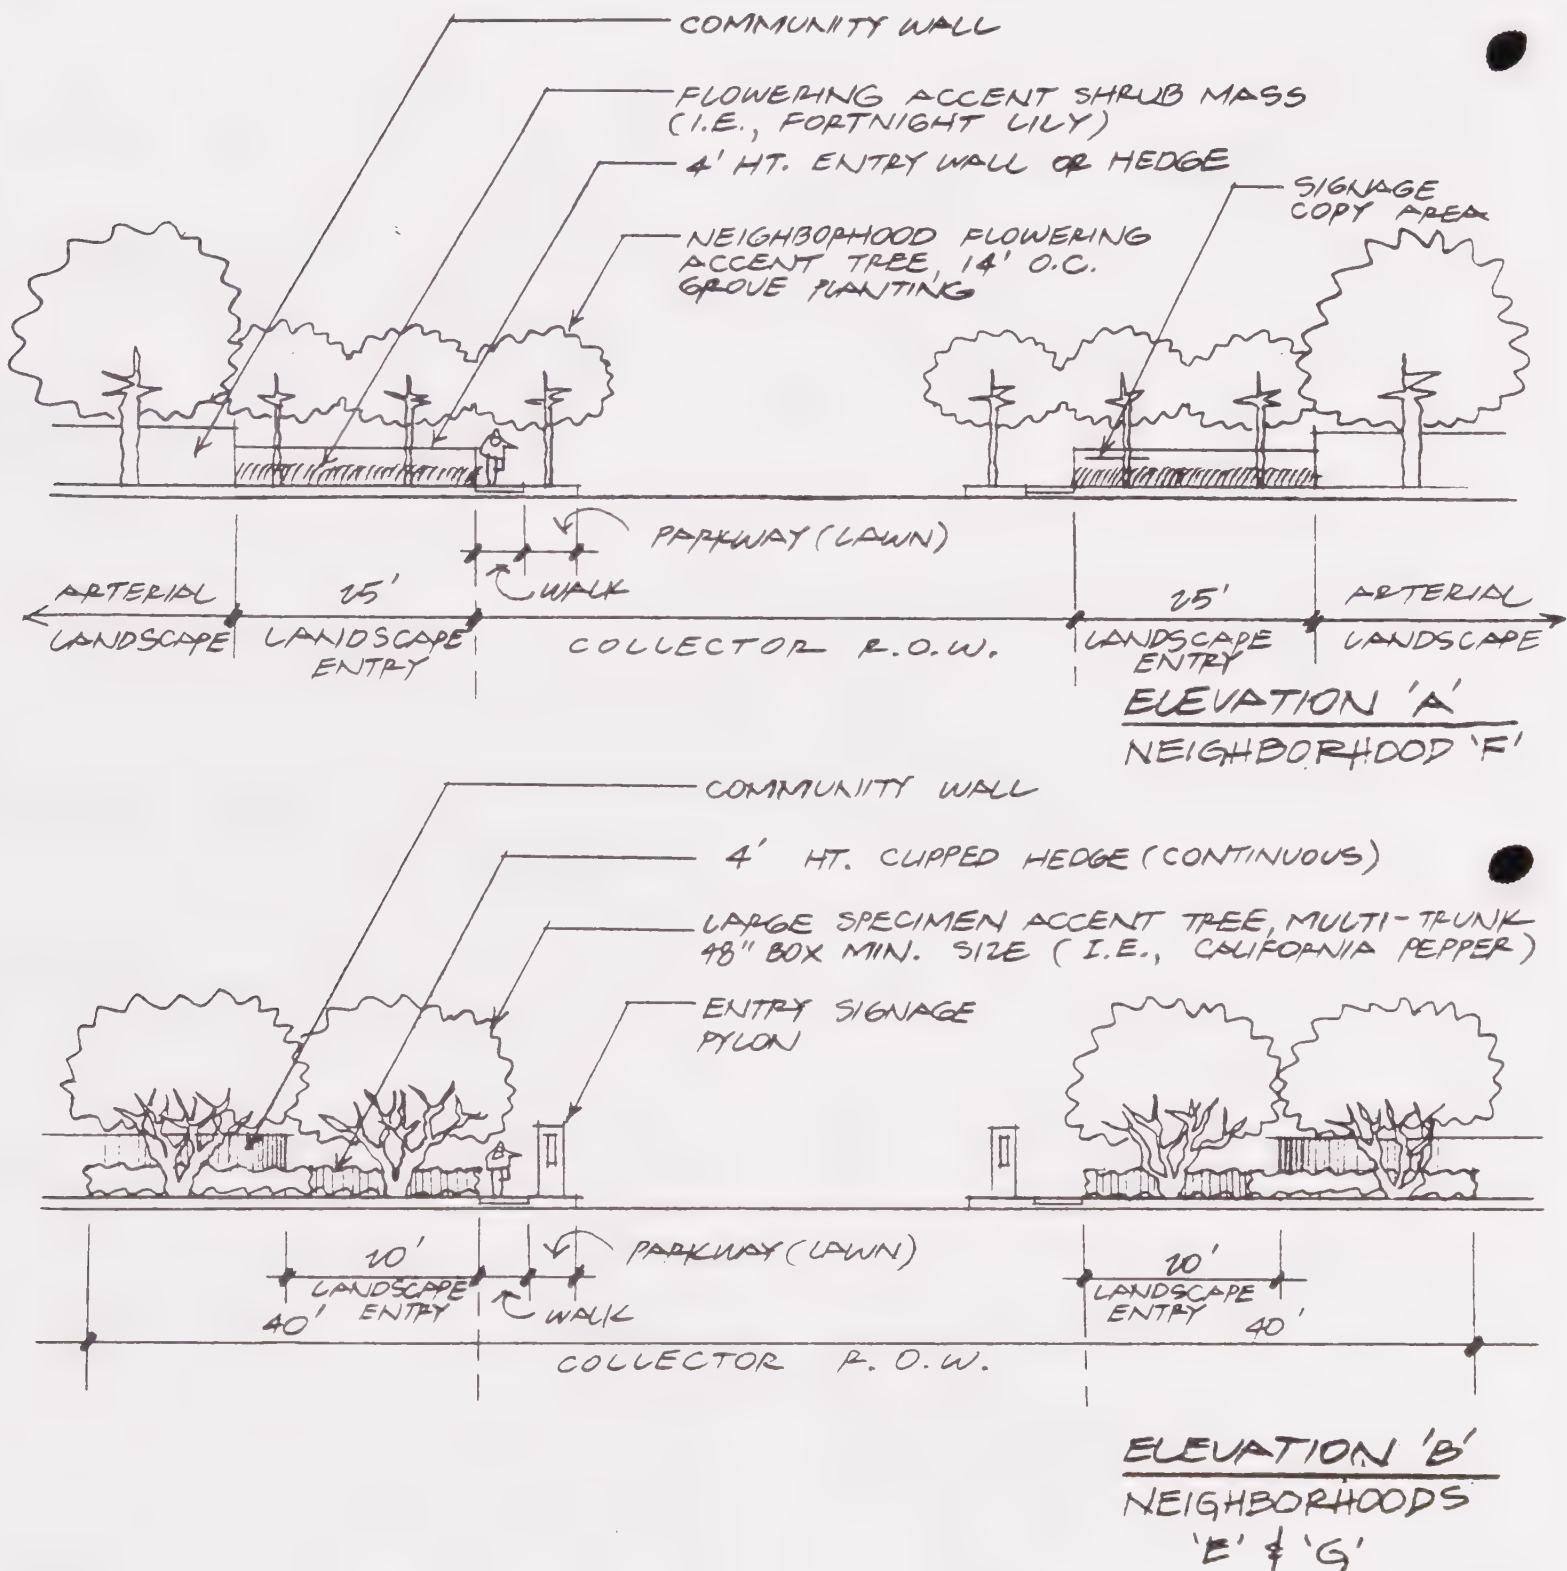 COMMUNITY WALL
FLOWERING ACCENT SHRUB MASS
(I.E., FORTNIGHT LILY)
4' HT. ENTRY WALL OR HEDGE
SIGNAGE
COPY AREA
NEIGHBORHOOD FLOWERING
ACCENT TREE, 14' O.C.
GROVE PLANTING
PARKWAY (LAWN)
WALK
ARTERIAL
LANDSCAPE
25'
LANDSCAPE
ENTRY
COLLECTOR R.O.W.
25'
LANDSCAPE
ENTRY
ARTERIAL
LANDSCAPE
ELEVATION 'A'
NEIGHBORHOOD 'F'
COMMUNITY WALL
4' HT. CLIPPED HEDGE (CONTINUOUS)
LARGE SPECIMEN ACCENT TREE, MULTI-TRUNK
48" BOX MIN. SIZE (I.E., CALIFORNIA PEPPER)
ENTRY SIGNAGE
PYLON
PARKWAY (LAWN)
WALK
20'
LANDSCAPE
ENTRY
40'
20'
LANDSCAPE
ENTRY
40'
COLLECTOR R.O.W.
ELEVATION 'B'
NEIGHBORHOODS
'E' & 'G'